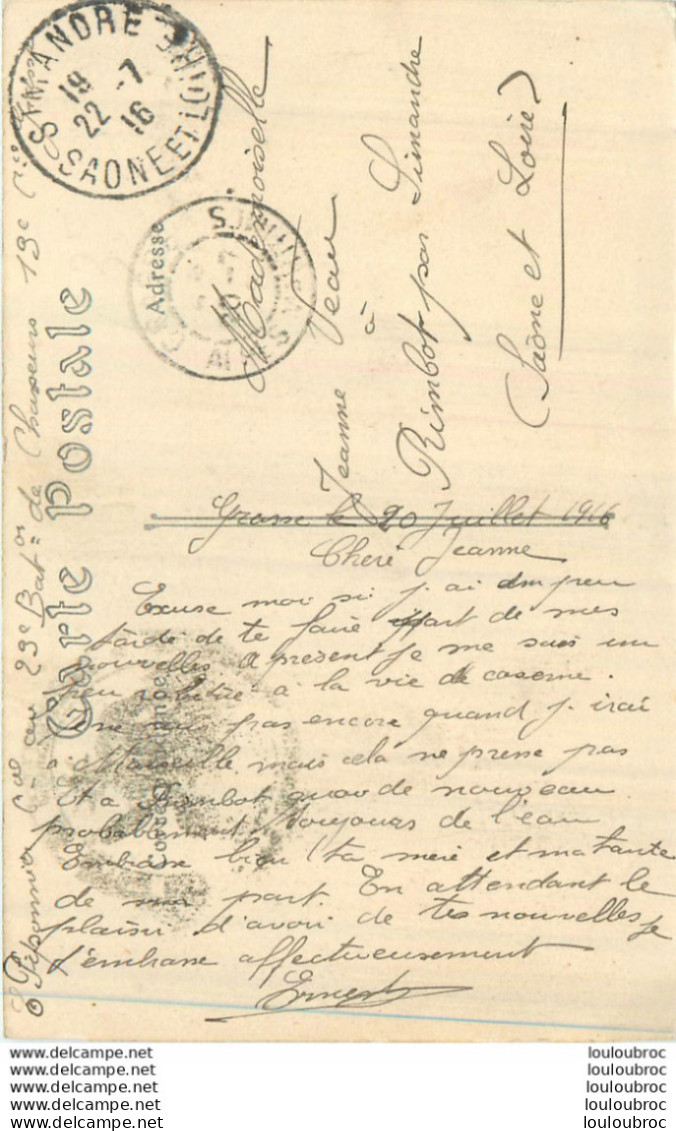 SIMANDRE
19
22 - 7
16
SAONE ET LOIRE
Carte Postale
Adresse
Mademoiselle
Jeanne Veau
à
Rimbot par Simandre
(Saône et Loire)
23e Baton de Chasseurs 13e Cie
Grasse le 20 Juillet 1916
Cheré Jeanne
Excuse moi si j. ai un peu
tardé de te faire part de mes
nouvelles A présent je me suis un
peu à la vie de caserne.
Je ne sai pas encore quand j. irai
à Marseille mais cela ne presse pas
Et a Rimbot quoi de nouveau
probablement toujours de l'eau
Embrasse bien ta mère et ma tante
de ma part. En attendant le
plaisir d'avoir de tes nouvelles je
t'embrasse affectueusement
Ernest
www.delcampe.net
www.delcampe.net
www.delcampe.net
www.delcampe.net
www.delcampe.net
louloubroc
louloubroc
louloubroc
louloubroc
louloubroc